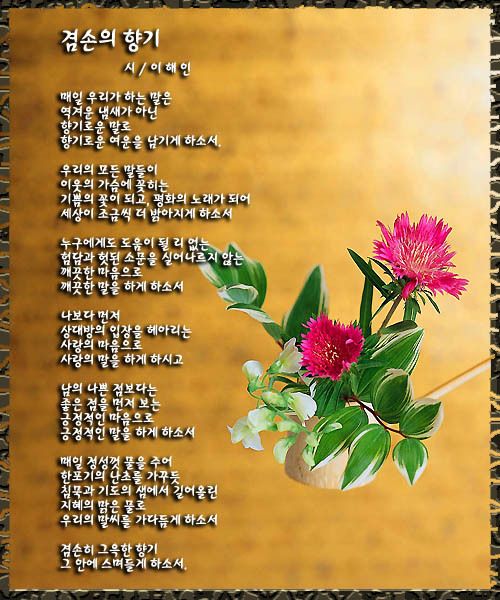 겸손의 향기
시 / 이 해 인
매일 우리가 하는 말은
역겨운 냄새가 아닌
향기로운 말로
향기로운 여운을 남기게 하소서.
우리의 모든 말들이
이웃의 가슴에 꽂히는
기쁨의 꽃이 되고, 평화의 노래가 되어
세상이 조금씩 더 밝아지게 하소서
누구에게도 도움이 될 리 없는
험담과 헛된 소문을 실어나르지 않는
깨끗한 마음으로
깨끗한 말을 하게 하소서
나보다 먼저
상대방의 입장을 헤아리는
사랑의 마음으로
사랑의 말을 하게 하시고
남의 나쁜 점보다는
좋은 점을 먼저 보는
긍정적인 마음으로
긍정적인 말을 하게 하소서
매일 정성껏 물을 주어
한포기의 난초를 가꾸듯
침묵과 기도의 샘에서 길어올린
지혜의 맑은 물로
우리의 말씨를 가다듬게 하소서
겸손히 그윽한 향기
그 안에 스며들게 하소서.